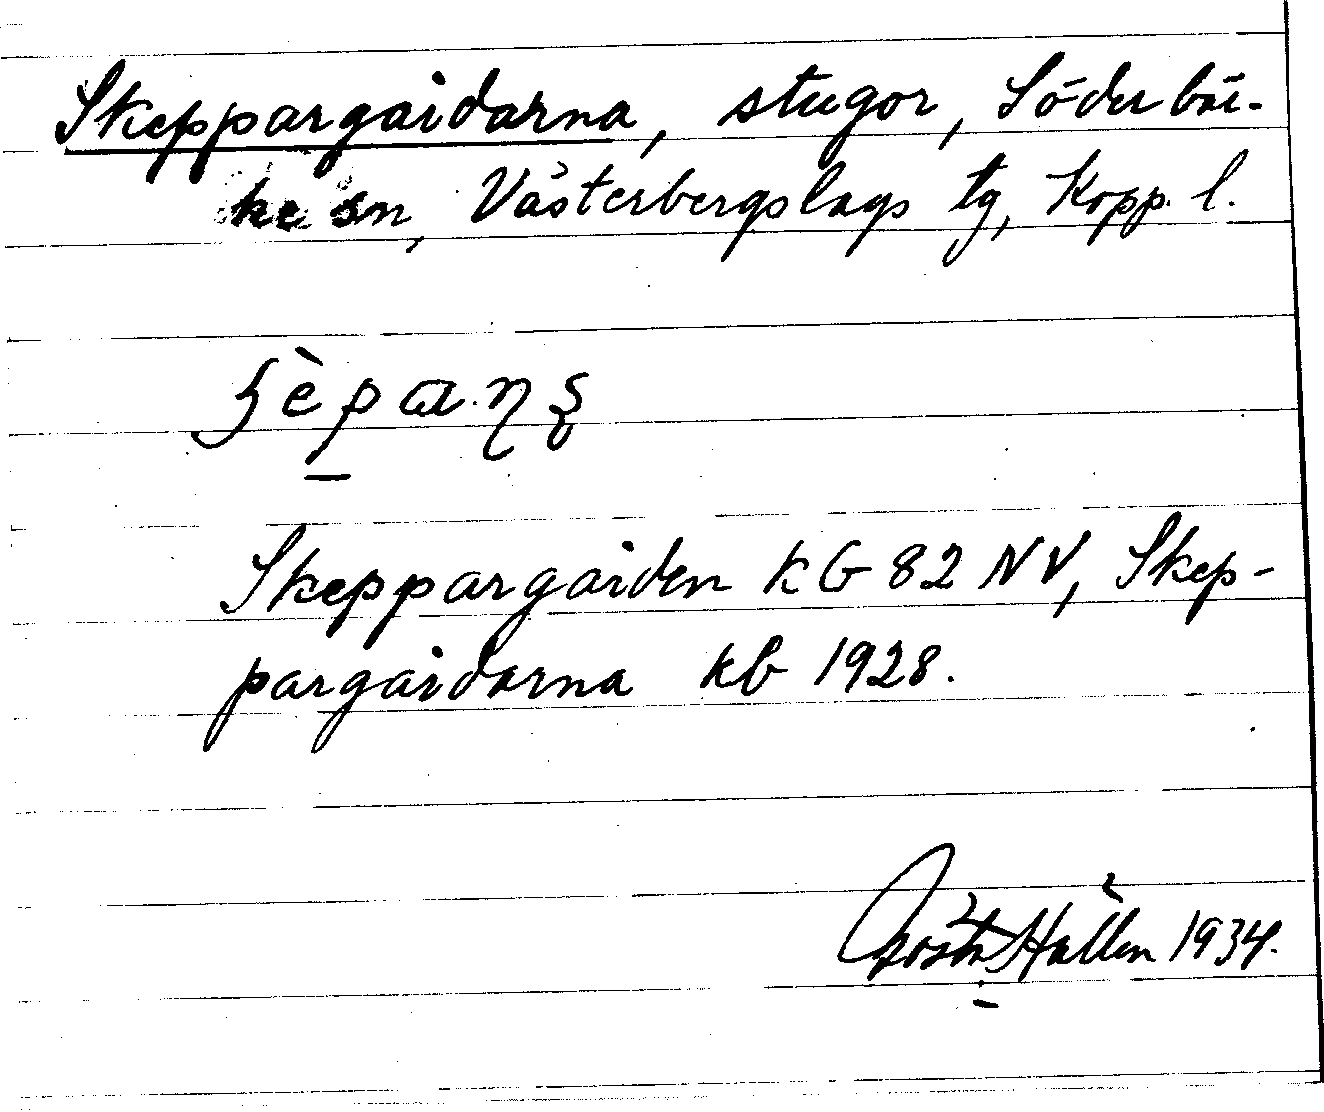 Skeppargårdarna, stugor, Söderbär-
ke sn, Västerbergslags tg, Kopp. l.
Skeppargården KG 82 NV, Skep-
pargårdarna kb 1928.
Gösta Hallén 1934.